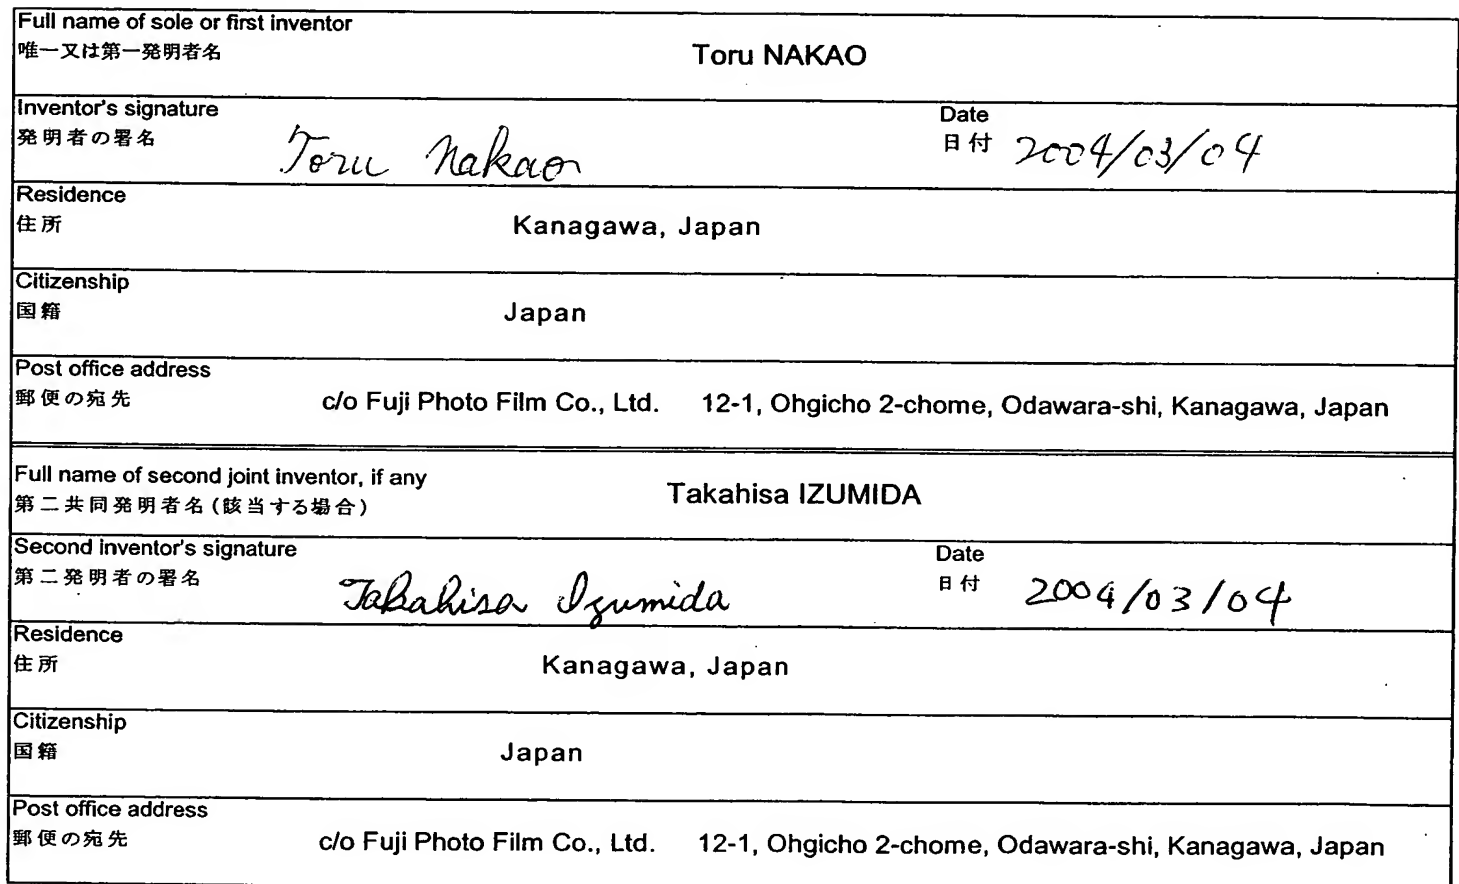 Full name of sole or first inventor
唯一又は第一発明者名 Toru NAKAO
Inventor's signature Date
発明者の署名 Toru Nakao 日付 2004/03/04
Residence
住所 Kanagawa, Japan
Citizenship
国籍 Japan
Post office address
郵便の宛先 c/o Fuji Photo Film Co., Ltd. 12-1, Ohgicho 2-chome, Odawara-shi, Kanagawa, Japan
Full name of second joint inventor, if any Takahisa IZUMIDA
第二共同発明者名 (該当する場合)
Second inventor's signature Date
第二発明者の署名 Takahisa Izumida 日付 2004/03/04
Residence
住所 Kanagawa, Japan
Citizenship
国籍 Japan
Post office address
郵便の宛先 c/o Fuji Photo Film Co., Ltd. 12-1, Ohgicho 2-chome, Odawara-shi, Kanagawa, Japan